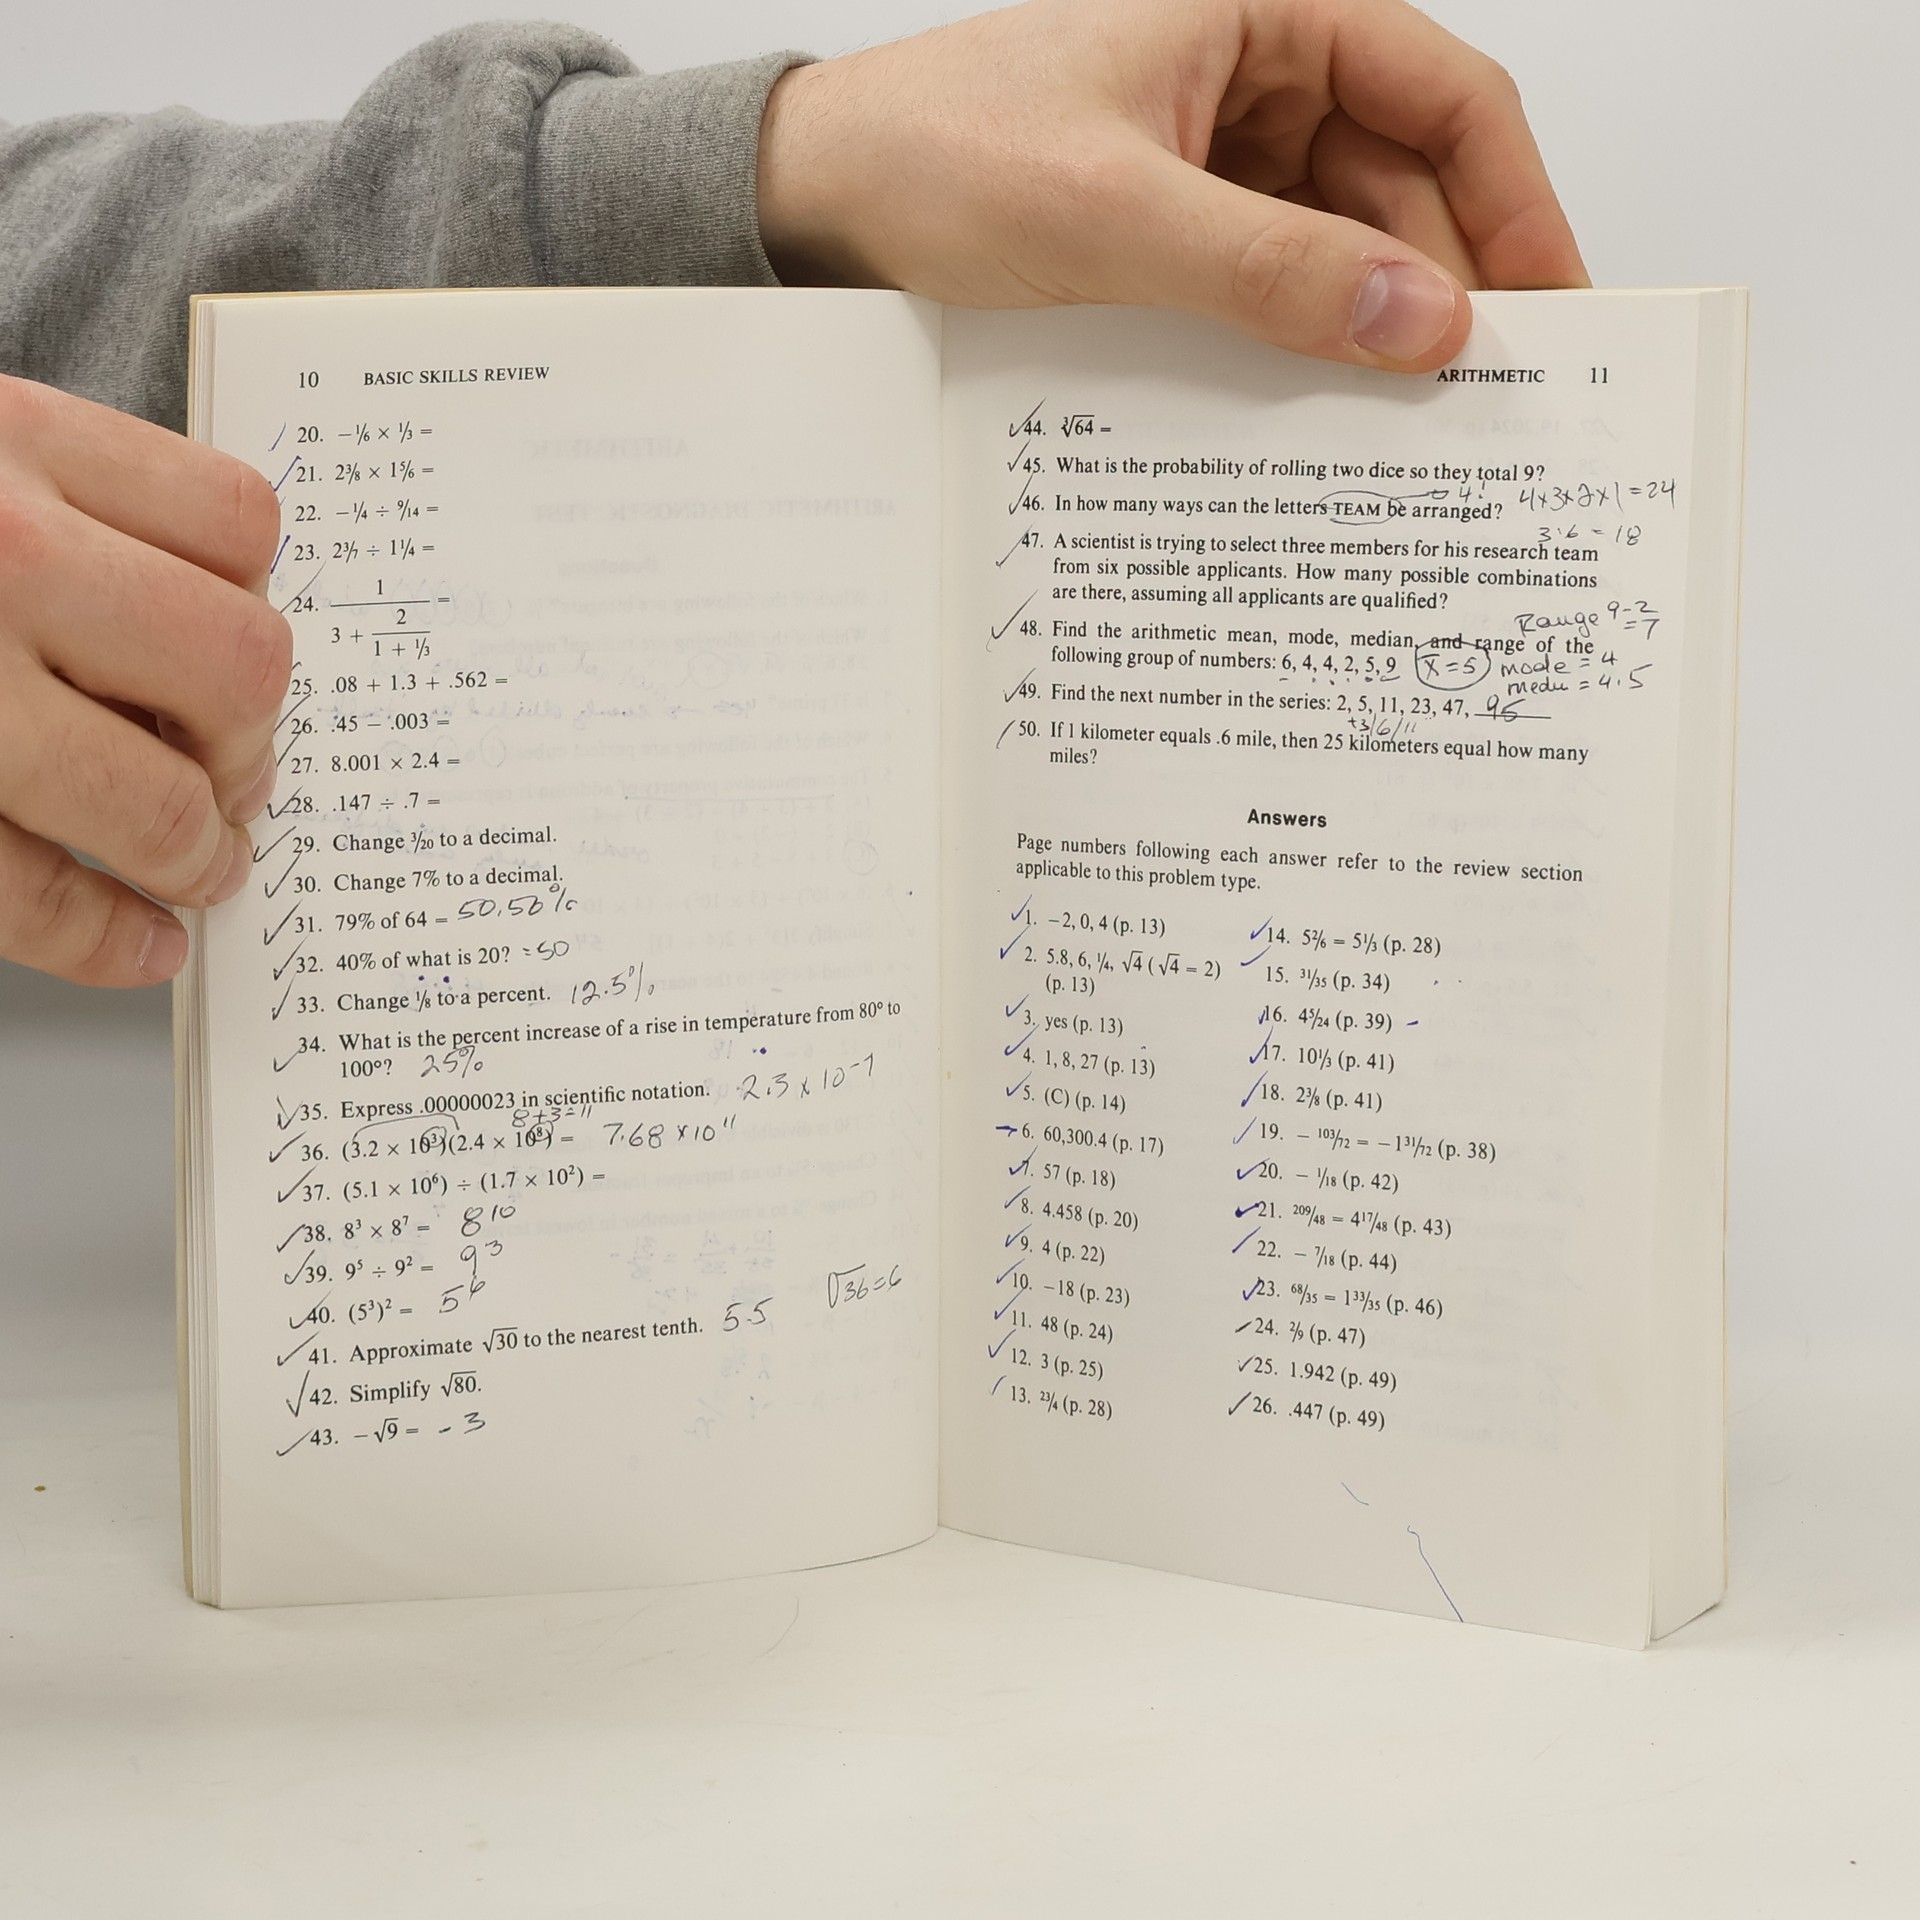 10 BASIC SKILLS REVIEW
20. −1/6 × 1/3 =
21. 2 3/8 × 1 5/6 =
22. −1/4 ÷ 9/14 =
23. 2 3/7 ÷ 1 1/4 =
24. 1 / (3 + 2 / (1 + 1/3)) =
25. .08 + 1.3 + .562 =
26. .45 − .003 =
27. 8.001 × 2.4 =
28. .147 ÷ .7 =
29. Change 3/20 to a decimal.
30. Change 7% to a decimal.
31. 79% of 64 = 50.56%
32. 40% of what is 20? = 50
33. Change 1/8 to a percent. 12.5%
34. What is the percent increase of a rise in temperature from 80° to
100°? 25%
35. Express .00000023 in scientific notation. 2.3 x 10⁻⁷
8+3=11
36. (3.2 × 10³)(2.4 × 10⁸) = 7.68 x 10¹¹
37. (5.1 × 10⁶) ÷ (1.7 × 10²) =
38. 8³ × 8⁷ = 8¹⁰
39. 9⁵ ÷ 9² = 9³
40. (5³)² = 5⁶
√36=6
41. Approximate √30 to the nearest tenth. 5.5
42. Simplify √80.
43. −√9 = -3
ARITHMETIC 11
44. ∛64 =
45. What is the probability of rolling two dice so they total 9?
4! 4x3x2x1=24
46. In how many ways can the letters TEAM be arranged?
3·6 = 18
47. A scientist is trying to select three members for his research team
from six possible applicants. How many possible combinations
are there, assuming all applicants are qualified?
Range 9-2
=7
48. Find the arithmetic mean, mode, median, and range of the
following group of numbers: 6, 4, 4, 2, 5, 9 x̄=5 mode = 4
= 4.5
49. Find the next number in the series: 2, 5, 11, 23, 47, 95
+3/6/11
50. If 1 kilometer equals .6 mile, then 25 kilometers equal how many
miles?
Answers
Page numbers following each answer refer to the review section
applicable to this problem type.
1. −2, 0, 4 (p. 13)
2. 5.8, 6, 1/4, √4 (√4 = 2)
(p. 13)
3. yes (p. 13)
4. 1, 8, 27 (p. 13)
5. (C) (p. 14)
6. 60,300.4 (p. 17)
7. 57 (p. 18)
8. 4.458 (p. 20)
9. 4 (p. 22)
10. −18 (p. 23)
11. 48 (p. 24)
12. 3 (p. 25)
13. 23/4 (p. 28)
14. 5 2/6 = 5 1/3 (p. 28)
15. 31/35 (p. 34)
16. 4 5/24 (p. 39)
17. 10 1/3 (p. 41)
18. 2 3/8 (p. 41)
19. − 103/72 = −1 31/72 (p. 38)
20. − 1/18 (p. 42)
21. 209/48 = 4 17/48 (p. 43)
22. − 7/18 (p. 44)
23. 68/35 = 1 33/35 (p. 46)
24. 2/9 (p. 47)
25. 1.942 (p. 49)
26. .447 (p. 49)